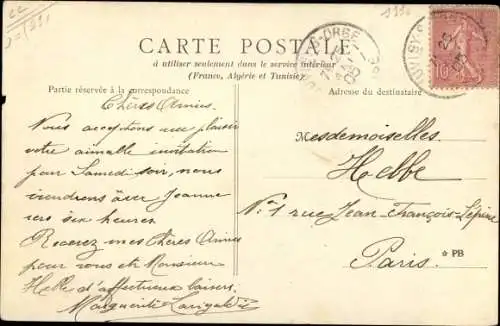 CARTE POSTALE
à utiliser seulement dans le service intérieur
(France, Algérie et Tunisie)
Partie réservée à la correspondance
Adresse du destinataire
Chères Amies
Nous acceptons avec plaisir
votre aimable invitation
pour Samedi soir, nous
viendrons avec Jeanne
vers six heures
Recevez mes Chères Amies
pour vous et Monsieur
Hebbe d'affectueux baisers
Marguerite
Mesdemoiselles
Hebbe
N° 1 rue Jean-François-Lépine
Paris.
* PB
10